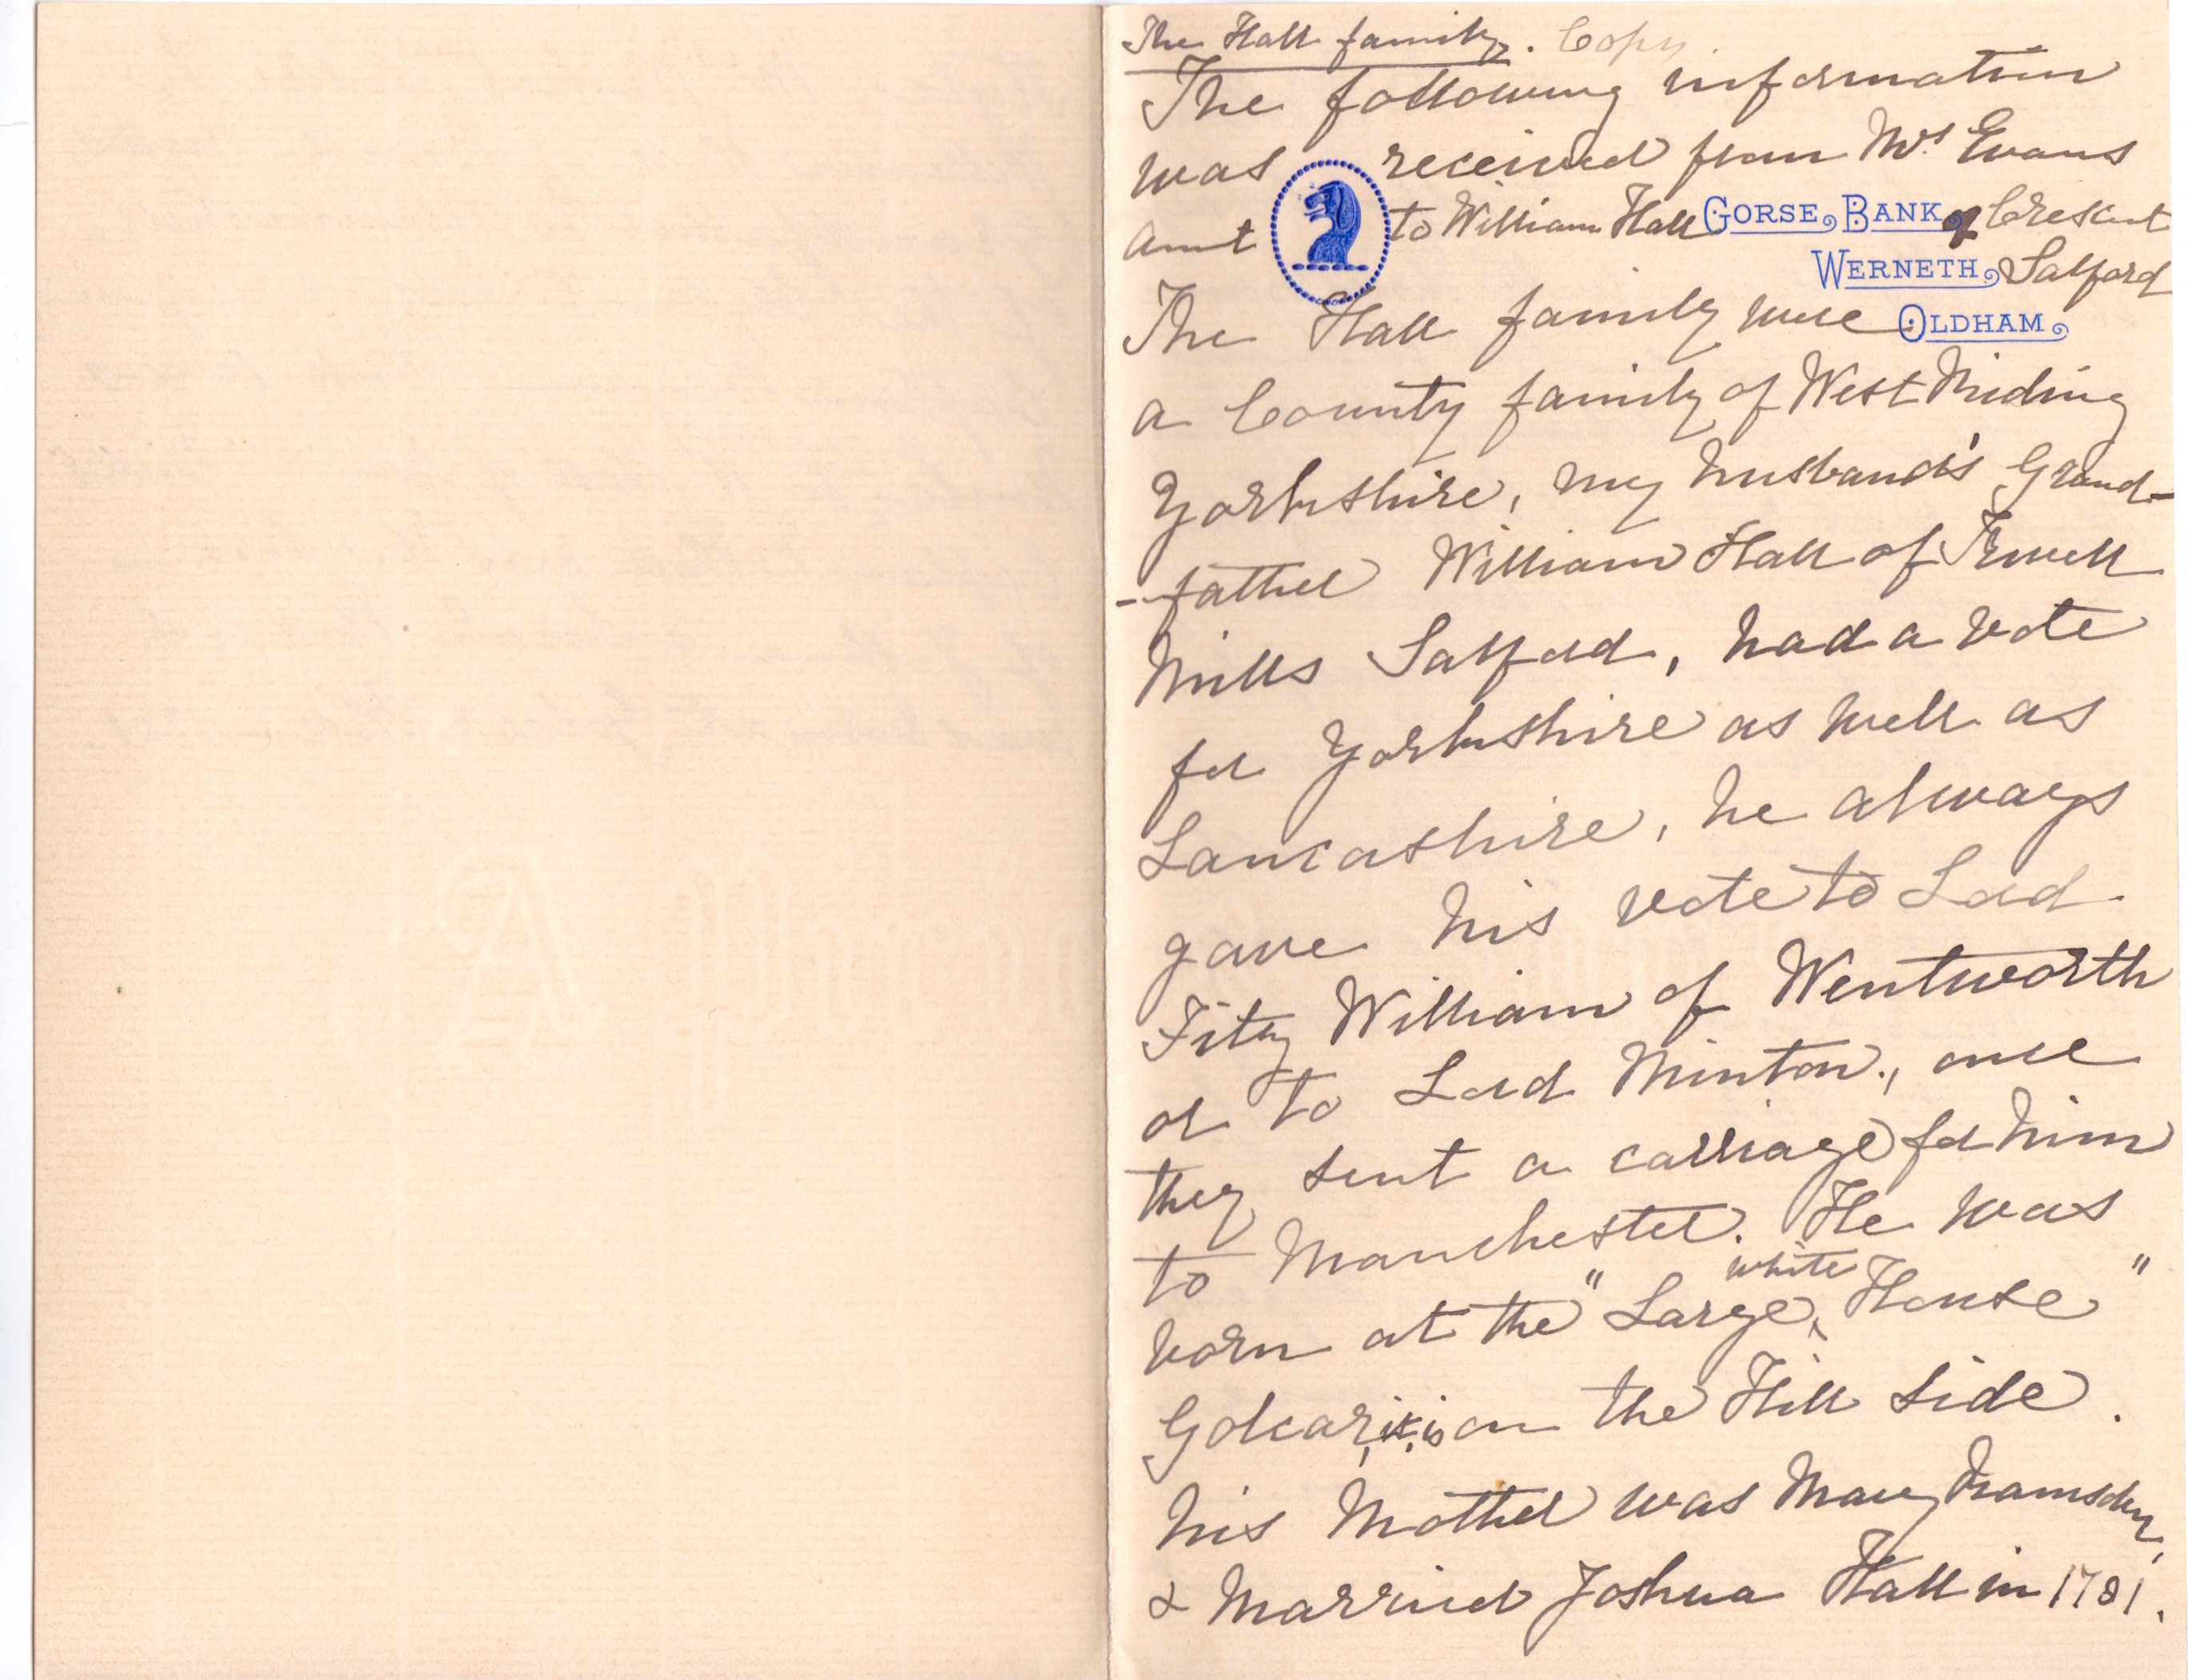 The Hall family. Copy.
The following information
was received from Mrs Evans
aunt to William Hall of Crescent
Salford
GORSE BANK
WERNETH
OLDHAM
The Hall family were
a County family of West Riding
Yorkshire, my husband's Grand-
-father William Hall of Irwell
Mills Salford, had a vote
for Yorkshire as well as
Lancashire, he always
gave his vote to Lord
Fitz William of Wentworth
or to Lord Minton, once
they sent a carriage for him
to Manchester. He was
born at the "Large white House"
Golcar, it is on the Hill side.
his Mother was Mary Ramsden,
& Married Joshua Hall in 1781.